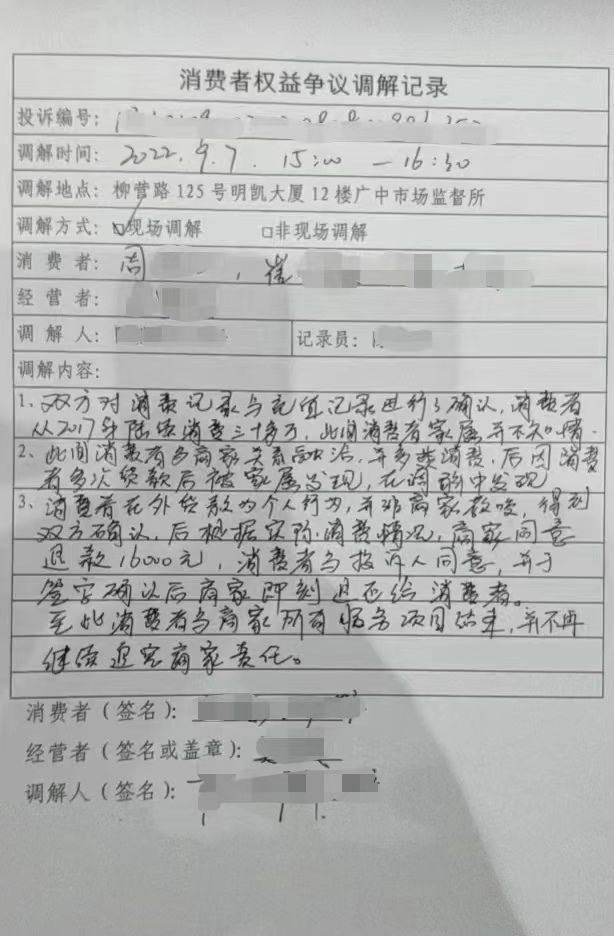 消费者权益争议调解记录
投诉编号：
调解时间：2022.9.7. 15:00 —16:30
调解地点：柳营路125号明凯大厦12楼广中市场监督所
调解方式：☑现场调解 □非现场调解
消费者：周 ，崔
经营者：
调解人： 记录员：
调解内容：
1、双方对消费记录与充值记录进行了确认，消费者
从2017年陆续消费三十多万，此间消费者家属并不知情。
2、此间消费者与商家关系融洽，并多次消费，后因消费
者多次贷款后被家属发现，在调解中发现
3、消费者在外贷款为个人行为，并非商家教唆，得到
双方确认，后根据实际消费情况，商家同意
退款16000元，消费者与投诉人同意，并于
签字确认后商家即刻退还给消费者。
至此消费者与商家所有服务项目结束，并不再
继续追究商家责任。
消费者（签名）：
经营者（签名或盖章）：
调解人（签名）：